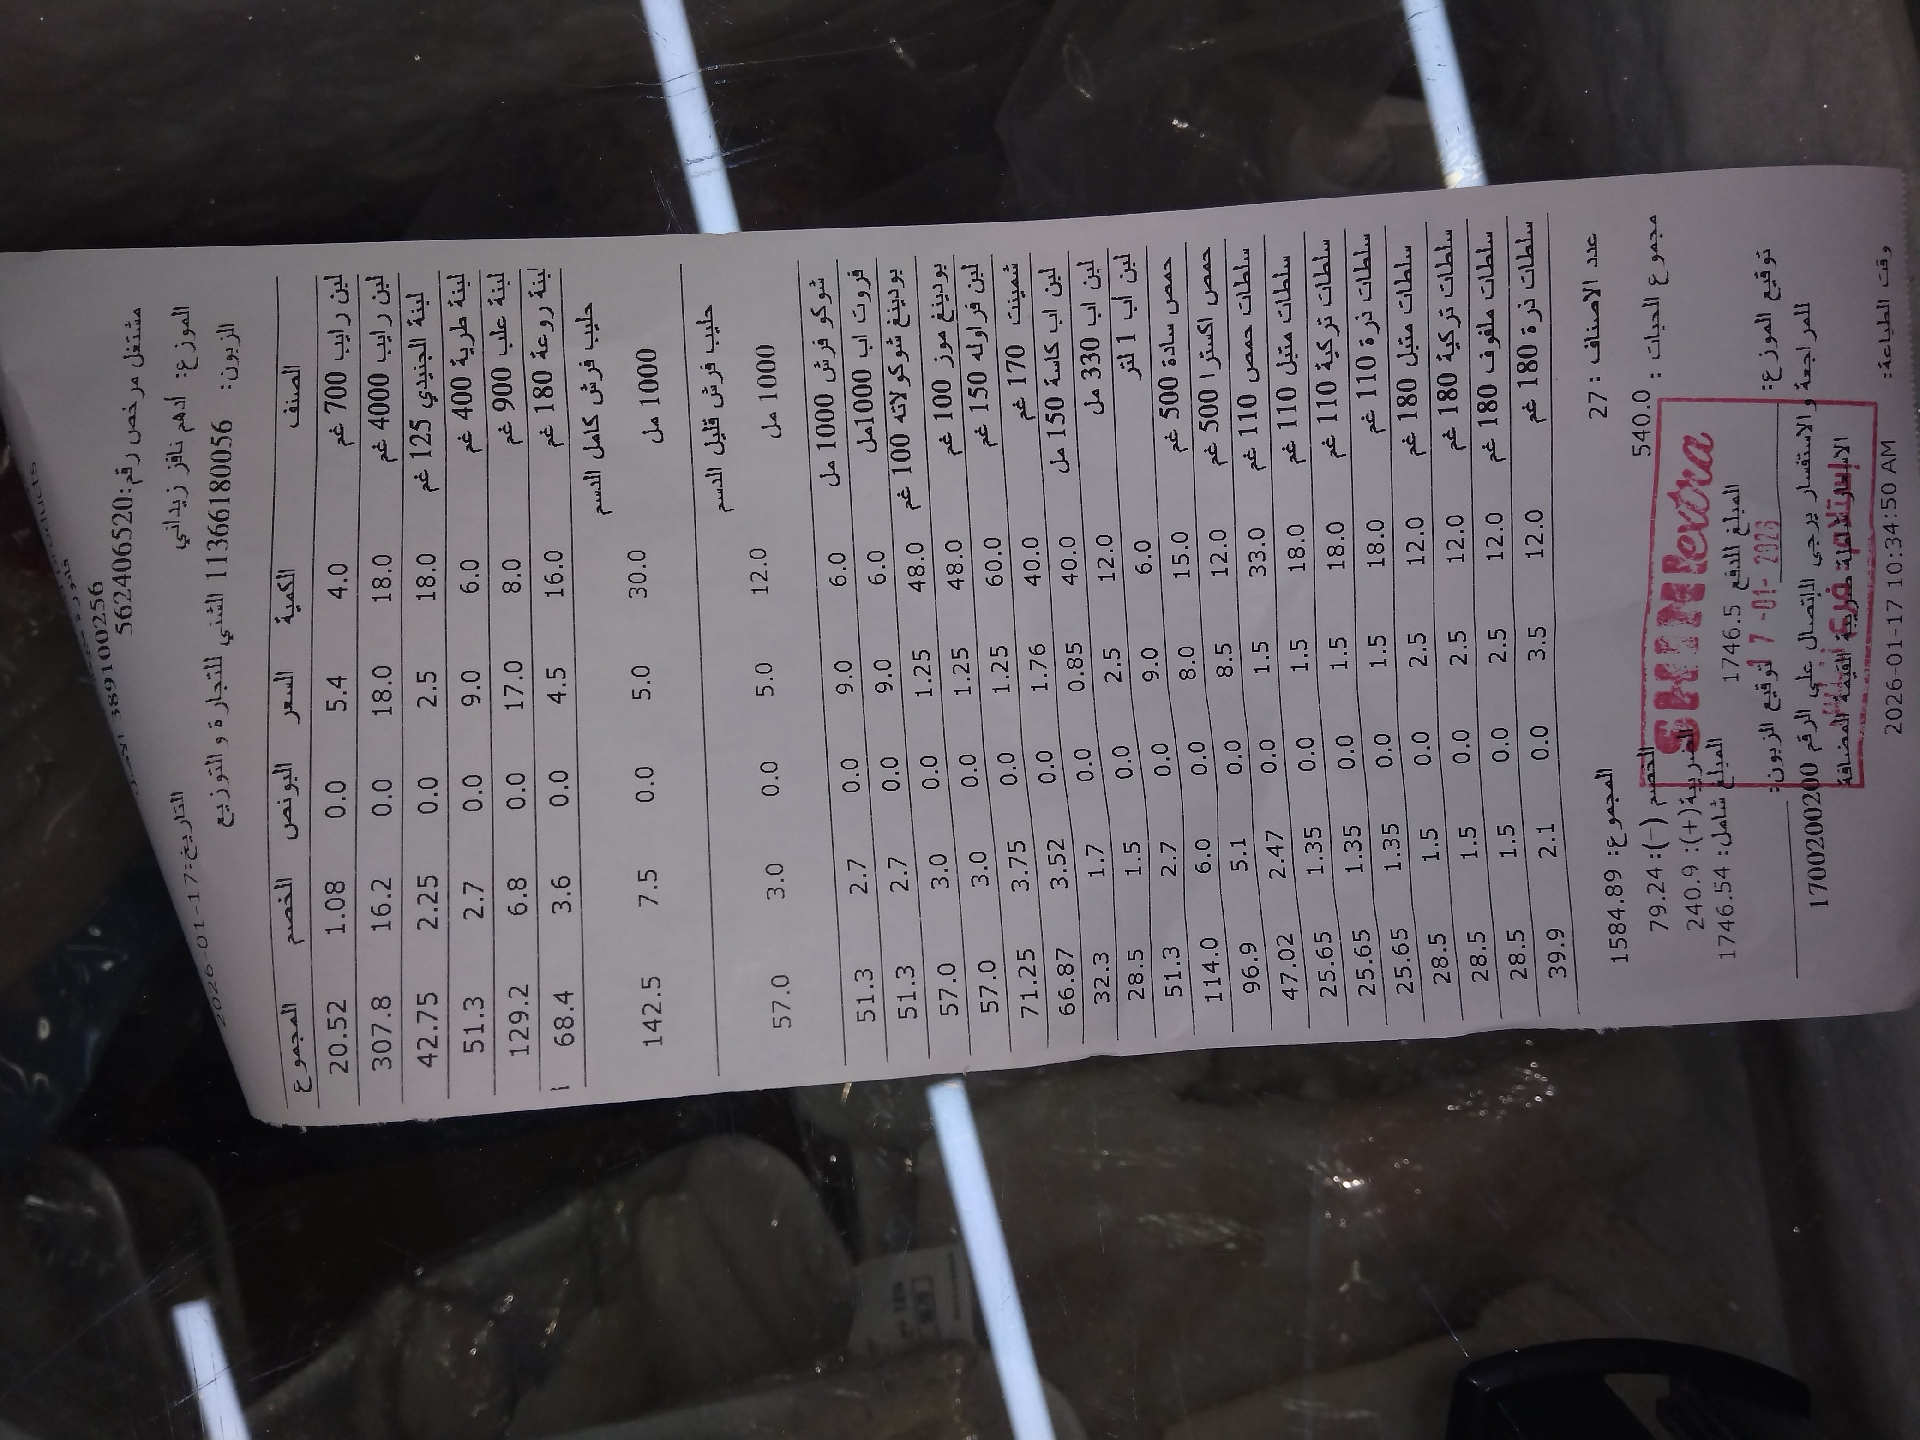 PRODUCTS
389100256
مشتغل مرخص رقم:562406520
الموزع: ادهم نافز زيداني التاريخ:17-01-2026
الزبون: 11366180056 الثني للتجارة و التوزيع
الصنف الكمية السعر البونص الخصم المجموع
لبن رايب 700 غم 4.0 5.4 0.0 1.08 20.52
لبن رايب 4000 غم 18.0 18.0 0.0 16.2 307.8
لبنة الجنيدي 125 غم 18.0 2.5 0.0 2.25 42.75
لبنة طرية 400 غم 6.0 9.0 0.0 2.7 51.3
لبنة علب 900 غم 8.0 17.0 0.0 6.8 129.2
لبنة روعة 180 غم 16.0 4.5 0.0 3.6 68.4
حليب فرش كامل الدسم
1000 مل 30.0 5.0 0.0 7.5 142.5
حليب فرش قليل الدسم
1000 مل 12.0 5.0 0.0 3.0 57.0
شوكو فرش 1000 مل 6.0 9.0 0.0 2.7 51.3
فروت اب 1000مل 6.0 9.0 0.0 2.7 51.3
بودينغ شوكولاته 100 غم 48.0 1.25 0.0 3.0 57.0
بودينغ موز 100 غم 48.0 1.25 0.0 3.0 57.0
لبن فراوله 150 غم 60.0 1.25 0.0 3.75 71.25
شمينت 170 غم 40.0 1.76 0.0 3.52 66.87
لبن اب كاسة 150 مل 40.0 0.85 0.0 1.7 32.3
لبن اب 330 مل 12.0 2.5 0.0 1.5 28.5
لبن اب 1 لتر 6.0 9.0 0.0 2.7 51.3
حمص سادة 500 غم 15.0 8.0 0.0 6.0 114.0
حمص اكسترا 500 غم 12.0 8.5 0.0 5.1 96.9
سلطات حمص 110 غم 33.0 1.5 0.0 2.47 47.02
سلطات متبل 110 غم 18.0 1.5 0.0 1.35 25.65
سلطات تركية 110 غم 18.0 1.5 0.0 1.35 25.65
سلطات ذرة 110 غم 18.0 1.5 0.0 1.35 25.65
سلطات متبل 180 غم 12.0 2.5 0.0 1.5 28.5
سلطات تركية 180 غم 12.0 2.5 0.0 1.5 28.5
سلطات ملفوف 180 غم 12.0 2.5 0.0 1.5 28.5
سلطات ذرة 180 غم 12.0 3.5 0.0 2.1 39.9
عدد الاصناف : 27 المجموع: 1584.89
مجموع الحبات : 540.0 الخصم (-): 79.24
SHINI extra
الضريبة(+): 240.9
المبلغ للدفع 1746.5 المبلغ شامل: 1746.54
توقيع الموزع: توقيع الزبون:
17-01-2026
للمراجعة و الاستفسار يرجى الاتصال على الرقم 1700200200
الاسعار شاملة ضريبة القيمة المضافة
وقت الطباعة: 2026-01-17 10:34:50 AM